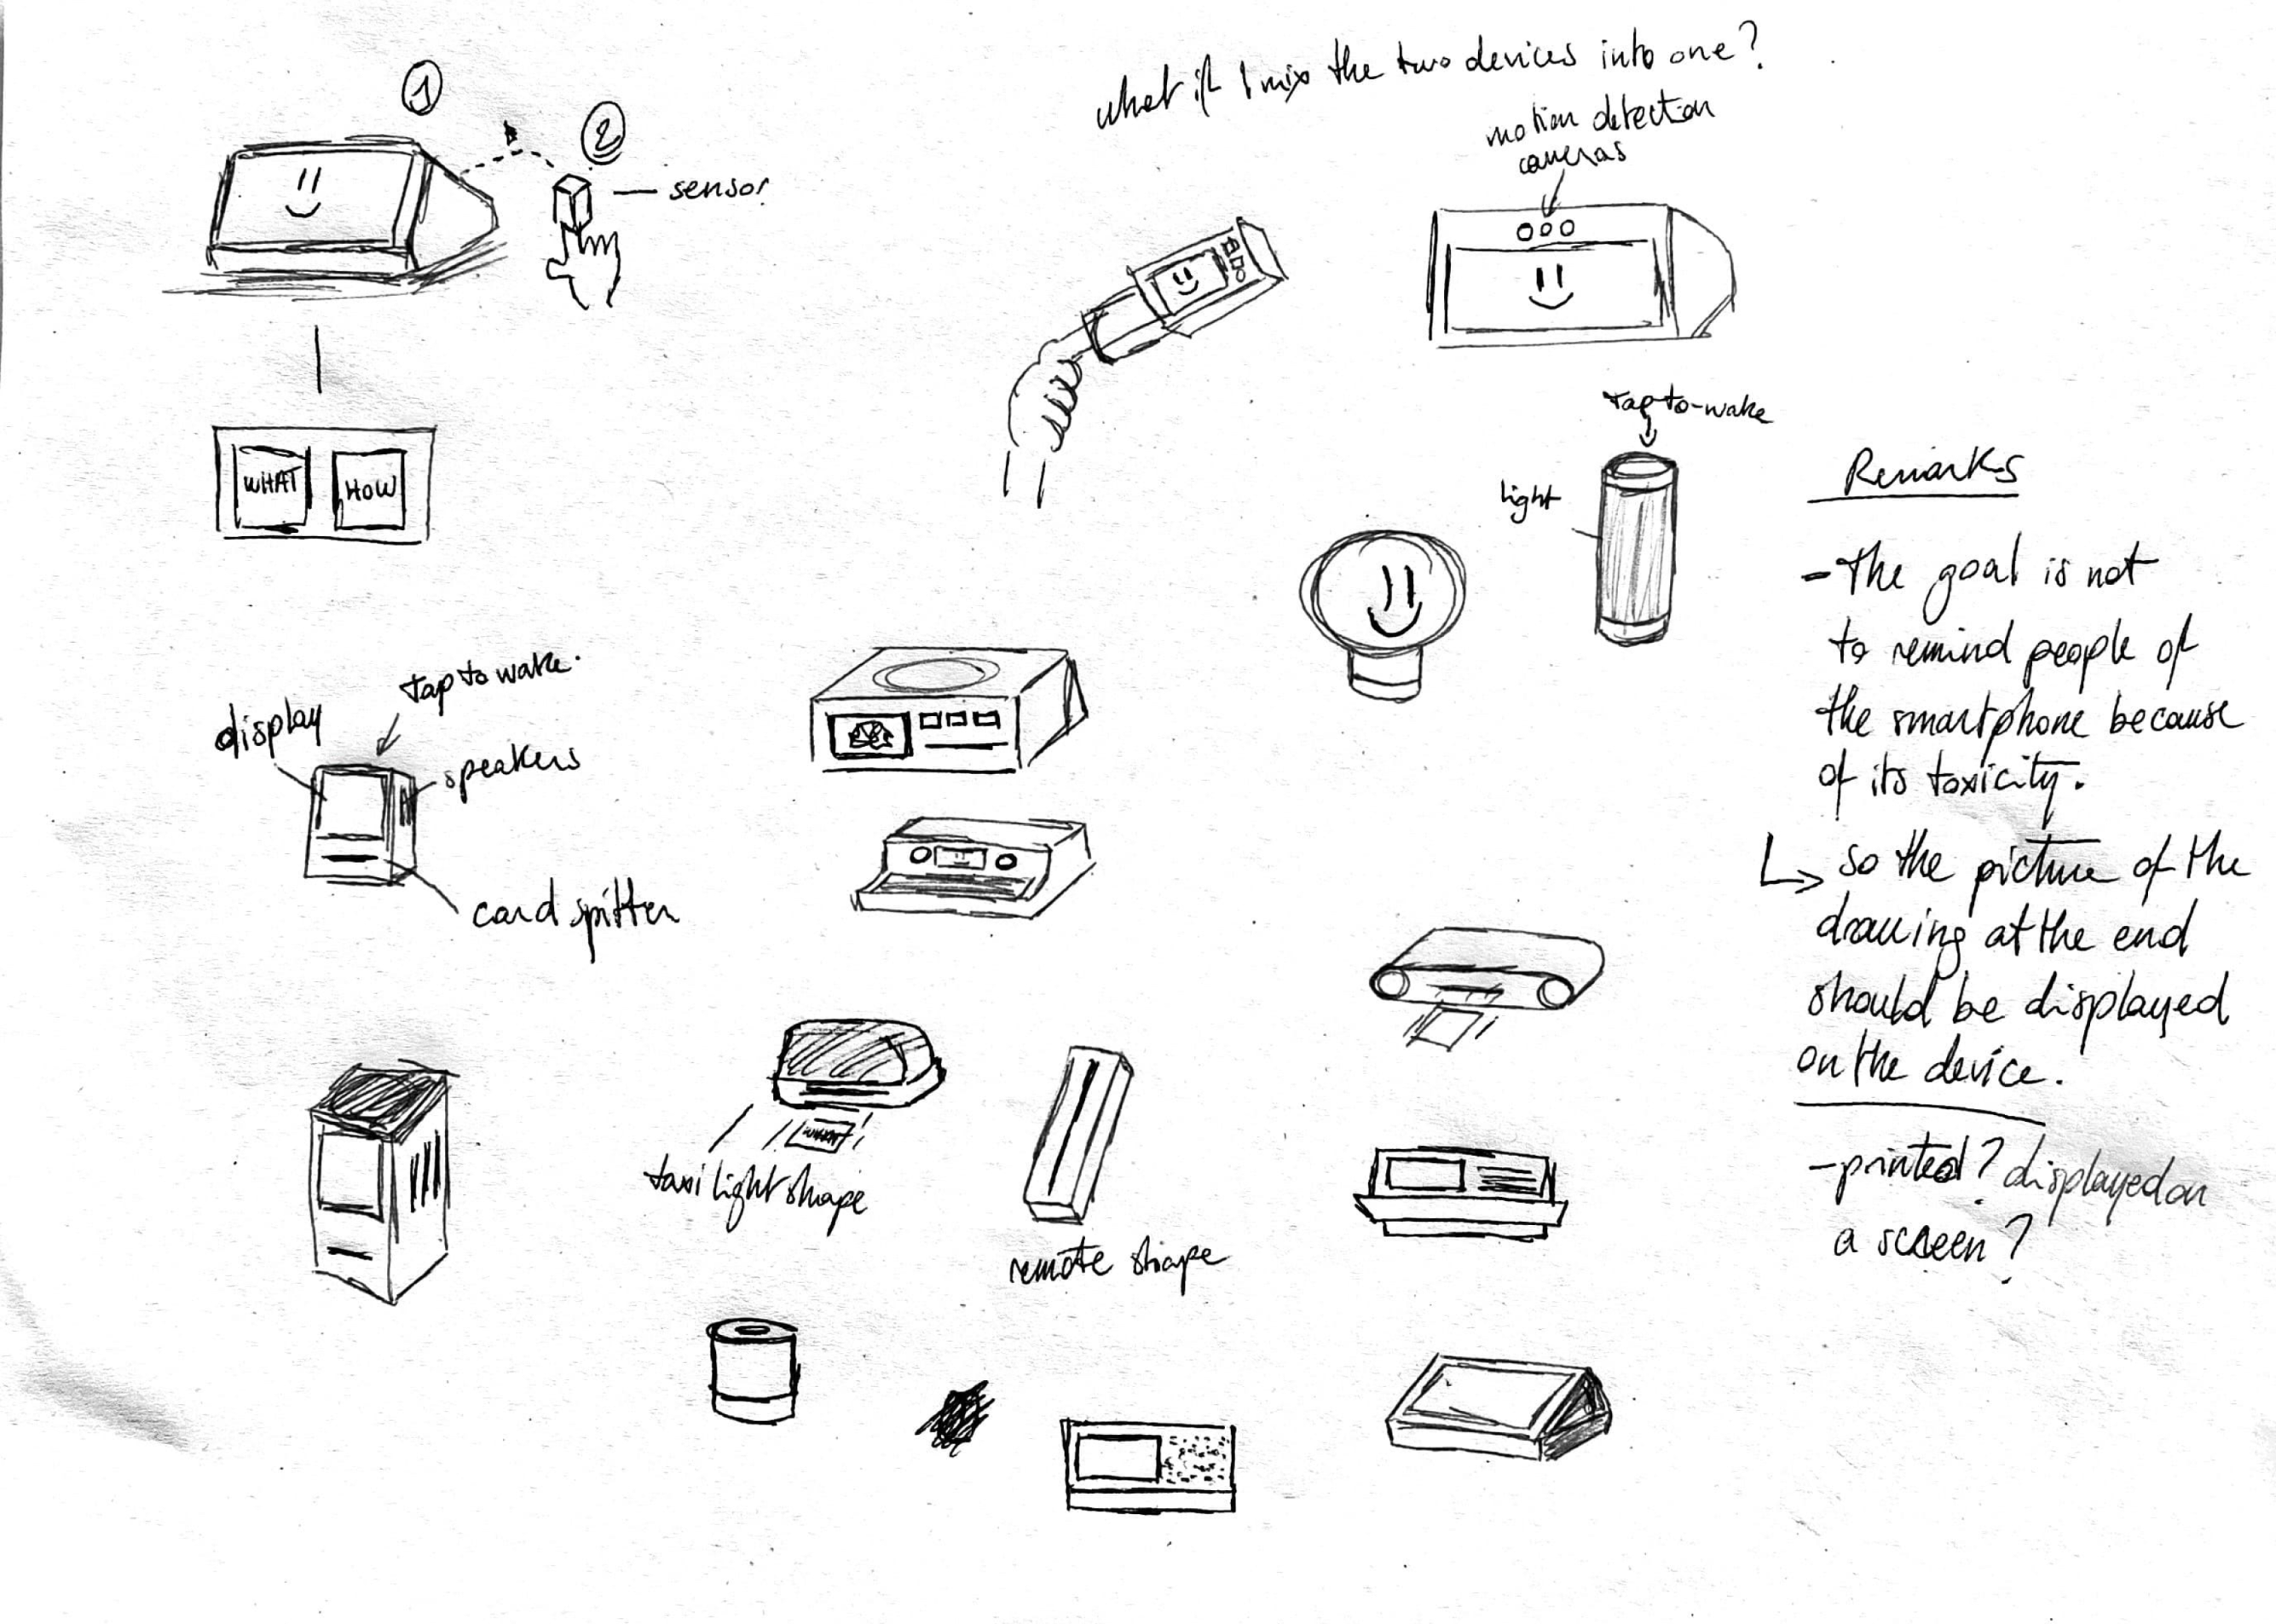 1
2
sensor
WHAT
HOW
what if I mix the two devices into one?
motion detection
cameras
tap-to-wake
light
display
tap to wake.
speakers
card spitter
WHAT
taxi light shape
remote shape
Remarks
- the goal is not
to remind people of
the smartphone because
of its toxicity.
↳ so the picture of the
drawing at the end
should be displayed
on the device.
- printed? displayed on
a screen?